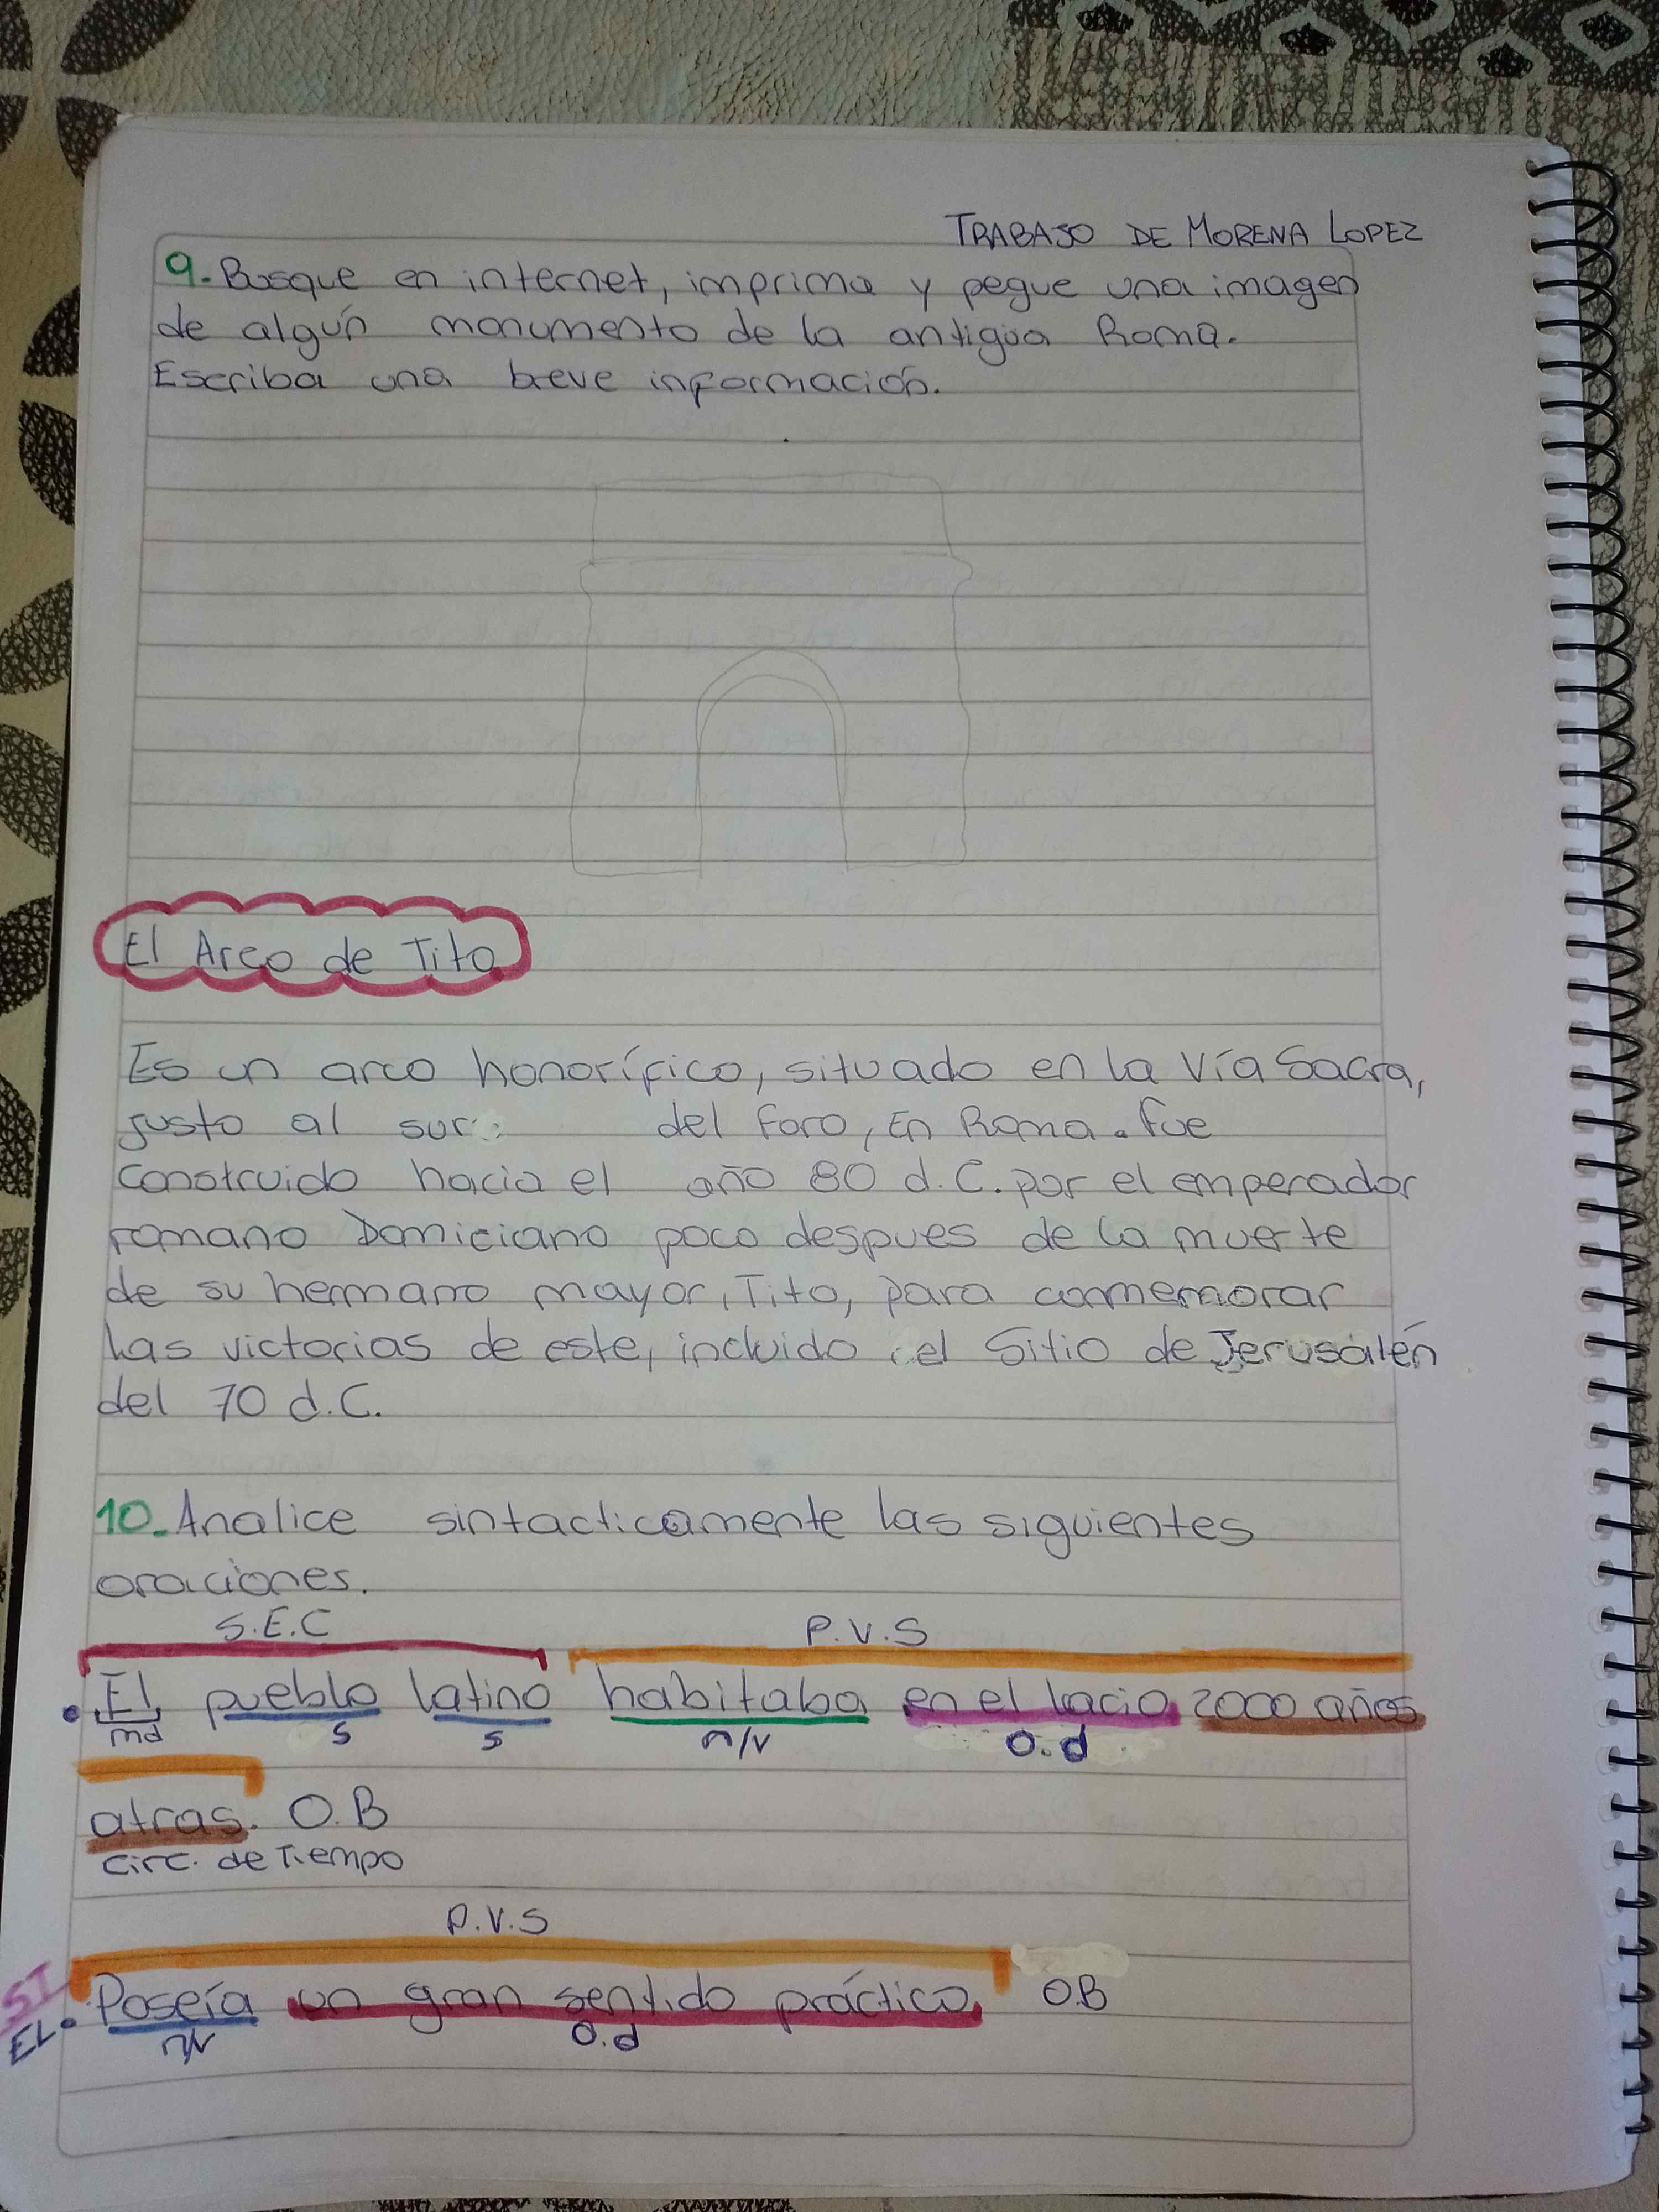 TRABAJO DE MORENA LOPEZ
9.- Busque en internet, imprima y pegue una imagen
de algún monumento de la antigüa Roma.
Escriba una breve información.
El Arco de Tito
Es un arco honorífico, situado en la Vía Sacra,
justo al sur del foro, En Roma. fue
construido hacia el año 80 d.C. por el emperador
romano Domiciano poco despues de la muerte
de su hermano mayor, Tito, para conmemorar
las victorias de este, incluido el Sitio de Jerusalén
del 70 d.C.
10.- Analice sintacticamente las siguientes
oraciones.
S.E.C P.V.S
• El pueblo latino habitaba en el lacio 2000 años
md s s n/v O.d
atras. O.B
circ. de Tiempo
P.V.S
ST
EL • Poseía un gran sentido práctico. O.B
n/v O.d